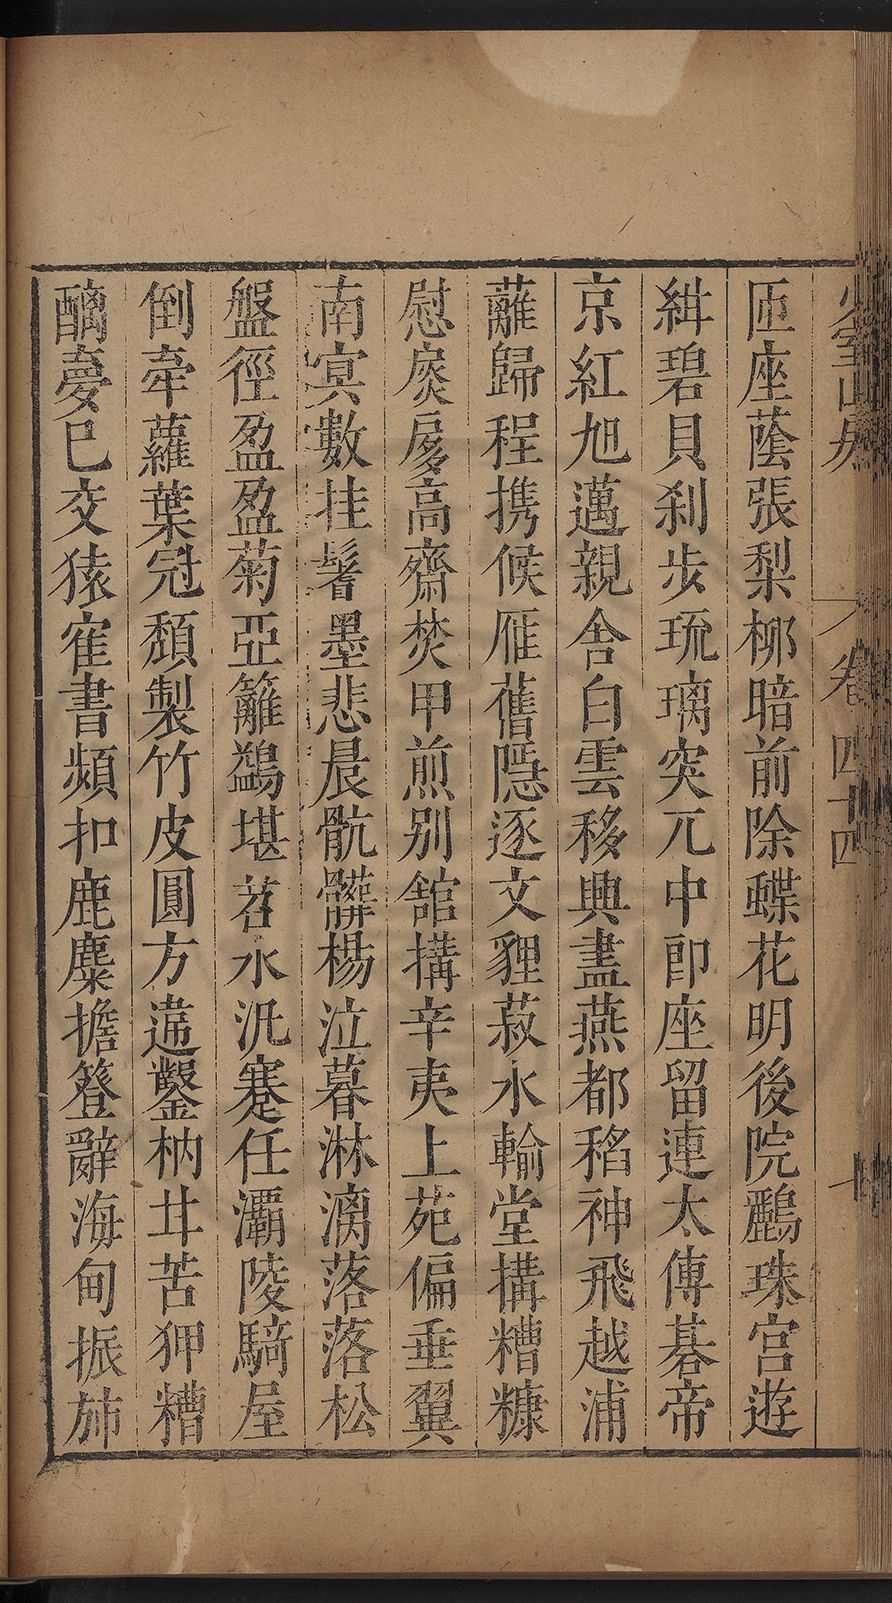 少室山房　卷四十四　十
匝座蔭張梨栁暗前除蝶花明後院鸝珠宮遊
緋碧貝刹步琉璃突兀中卽座留連太傅碁帝
京紅旭邁親舍白雲移興盡燕都稻神飛越浦
蘺歸程携候雁舊隱逐文貍菽水輸堂搆糟糠
慰扊扅高齋焚甲煎别舘搆辛夷上苑偏垂翼
南㝠數挂鬐墨悲晨骯髒楊泣暮淋漓落落松
盤徑盈盈菊亞籬鷀堪苕水汎蹇任灞陵騎屋
倒牽蘿葉冠頹製竹皮圓方違鑿枘甘苦狎糟
醨夢巳交猿寉書頻扣鹿麋擔簦辭海甸振斾